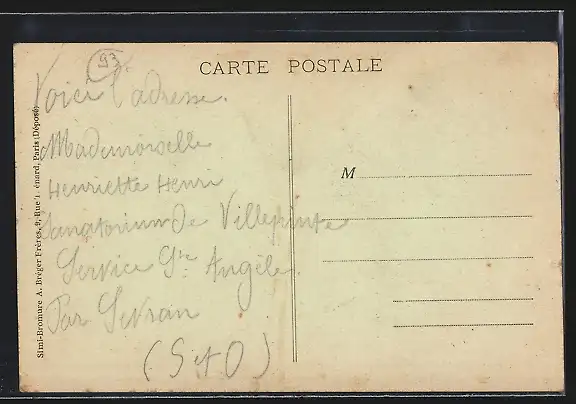 93
CARTE POSTALE
Voici l'adresse.
Mademoiselle
Henriette Henri
Sanatorium de Villepinte
Service Ste Angèle.
Par Sevran
(S et O)
M
Simi-Bromure A. Breger Frères, 9, Rue T énard, Paris (Déposé)